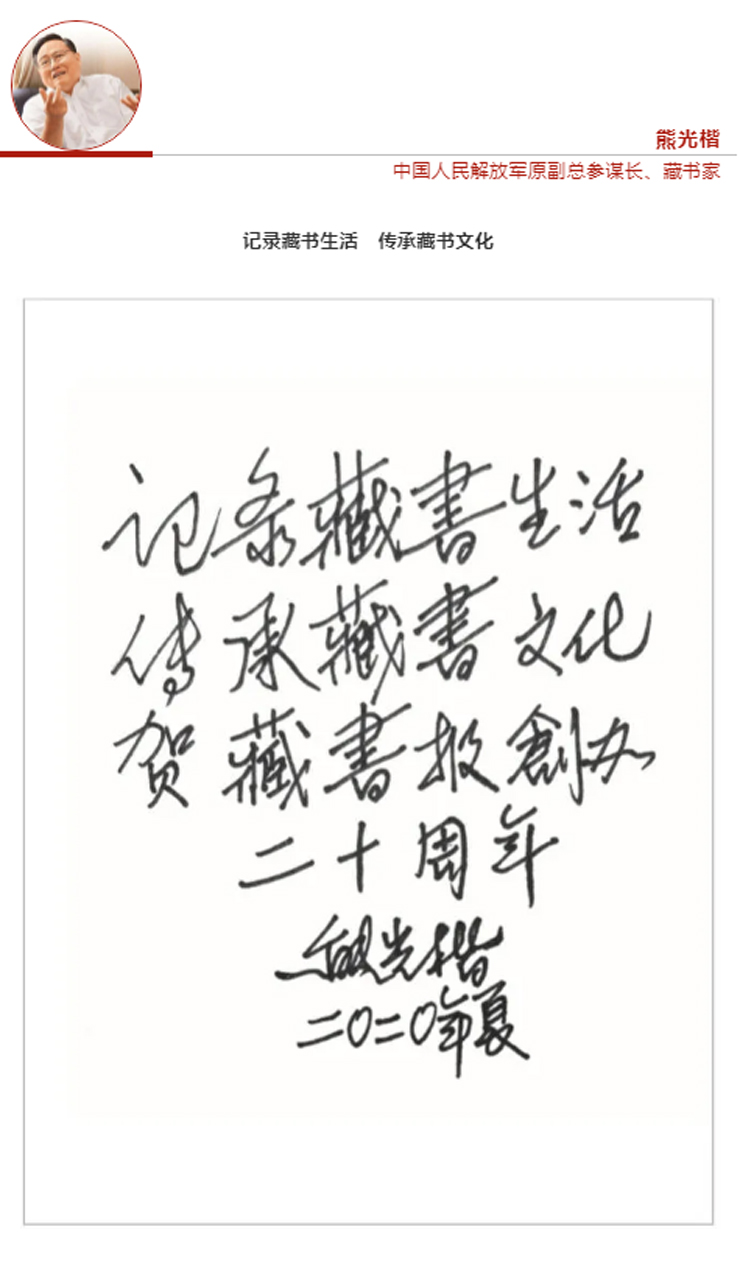 熊光楷
中国人民解放军原副总参谋长、藏书家
记录藏书生活　传承藏书文化
记录藏書生活
传承藏書文化
贺藏書报創办
二十周年
熊光楷
二〇二〇年夏